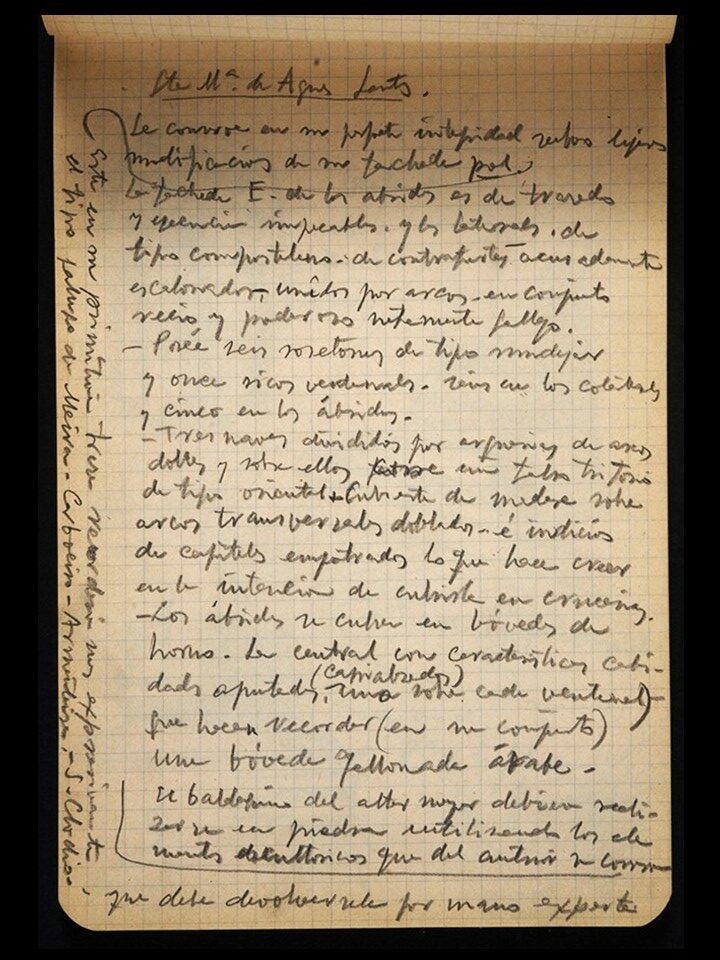 Sta Mª. de Aguas Santas.
Se conserva en su perfecta integridad salvo ligeras
modificaciones de su fachada pal.
La fachada E. de los ábsides es de trazado
y ejecución impecables. y las laterales. de
tipo compostelano. de contrafuertes acusadamente
escalonados, unidos por arcos. en conjunto
recio y poderoso netamente gallego.
- Posée seis rosetones de tipo mudéjar
y once ricos ventanales. seis en los colaterales
y cinco en los ábsides.
- Tres naves divididas por arquerias de arcos
dobles y sobre ellos un falso triforio
de tipo oriental. Cubierta de madera sobre
arcos transversales doblados. é indicios
de capiteles empotrados lo que hace creer
en la intencion de cubrirla en cruceria.
- Los ábsides se cubren en bóvedas de
horno. La central con caracteristicas
apuntadas, (capialzados) una sobre cada ventanal
que hacen recordar (en su conjunto)
una bóveda gallonada árabe.
El baldaquino del altar mayor debiera reali-
zarse en piedra utilizando los ele
mentos que del anterior se conservan
que debe devolversele por mano experta
Esta en su primitiva traza recordarianos expresivamente
el tipo galaico de Meira - Carboeiro - Armenteira, - S. Clodio.